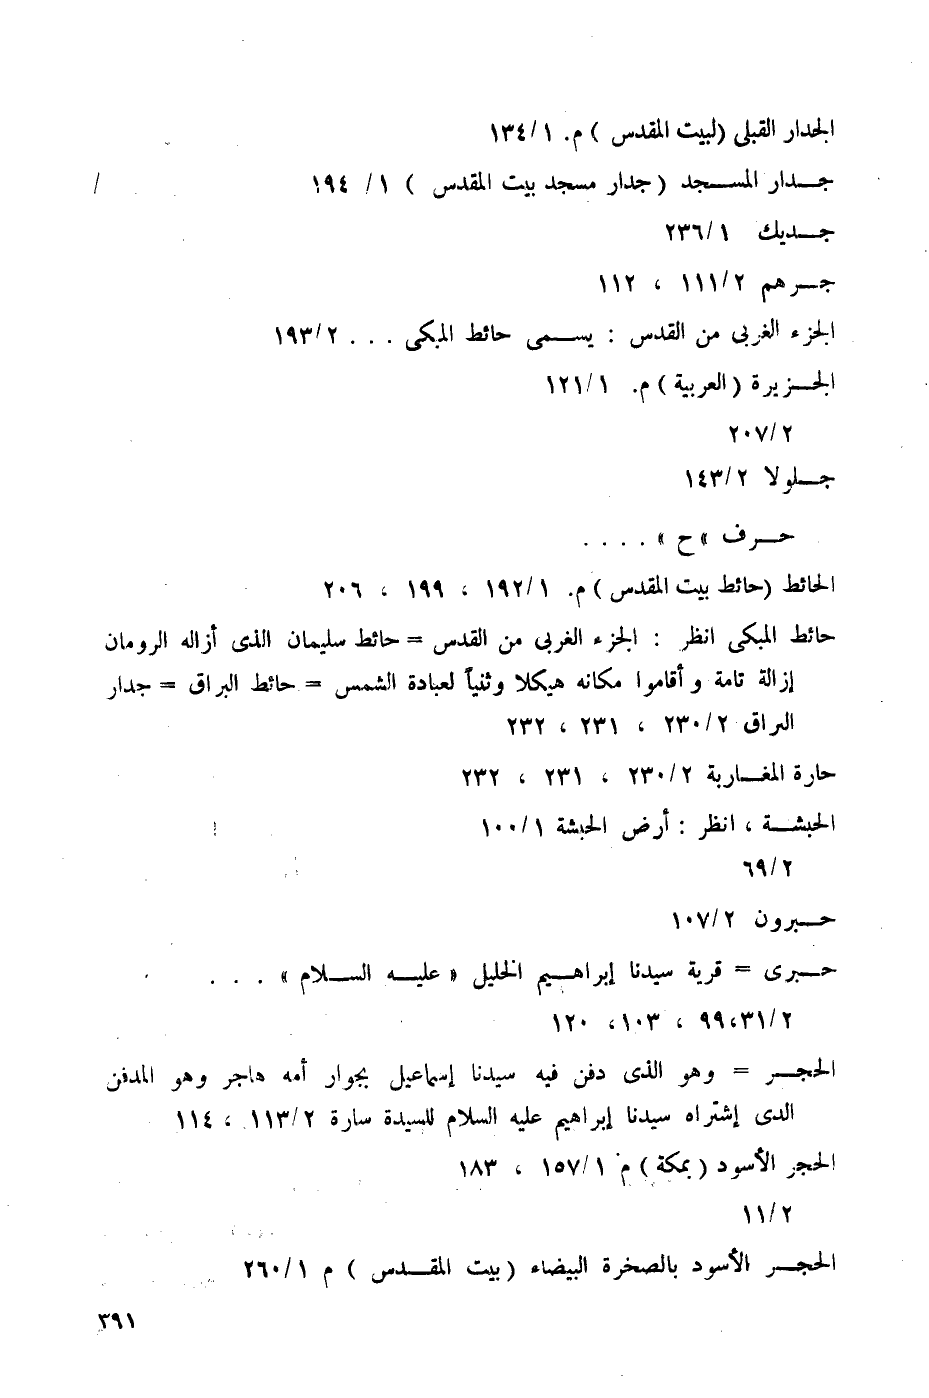 الجدار القبلى (لبيت المقدس ) م. ١٣٤/١
جـدار المسـجد ( جدار مسجد بيت المقدس ) ١/ ١٩٤
جـديك ٢٣٦/١
جـرهم ١١١/٢ ، ١١٢
الجزء الغربى من القدس : يسـمى حائط المبكى . . . ١٩٣/٢
الجـزيرة ( العربية ) م. ١٢١/١
٢٠٧/٢
جـلولا ١٤٣/٢
حـرف «ح» . . . .
الحائط (حائط بيت المقدس ) م. ١٩٢/١ ، ١٩٩ ، ٢٠٦
حائط المبكى انظر : الجزء الغربى من القدس = حائط سليمان الذى أزاله الرومان
إزالة تامة وأقاموا مكانه هيكلا وثنياً لعبادة الشمس = حائط البراق = جدار
البراق ٢٣٠/٢ ، ٢٣١ ، ٢٣٢
حارة المغـاربة ٢٣٠/٢ ، ٢٣١ ، ٢٣٢
الحبشـة ، انظر : أرض الحبشة ١٠٠/١
٦٩/٢
حـبرون ١٠٧/٢
حـبرى = قرية سيدنا إبراهـيم الخليل « عليـه السـلام » . . .
٩٩،٣١/٢ ، ١٠٣، ١٢٠
الحجـر = وهو الذى دفن فيه سيدنا إسماعيل بجوار أمه هاجر وهو المدفن
الدى إشتراه سيدنا إبراهيم عليه السلام للسيدة سارة ١١٣/٢ ، ١١٤
الحجر الأسود ( بمكة ) م ١٥٧/١ ، ١٨٣
١١/٢
الحجـر الأسود بالصخرة البيضاء ( بيت المقـدس ) م ٢٦٠/١
٣٩١